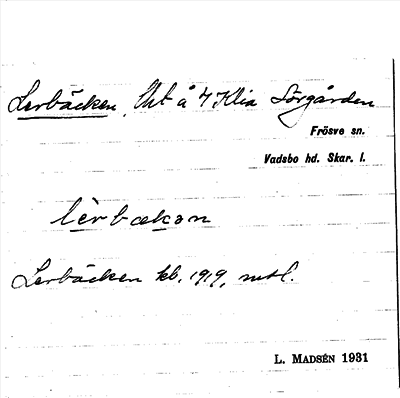 Lerbäcken, Uht å 4 Klia Sörgården
Frösve sn.
Vadsbo hd. Skar. l.
lèrbækən
Lerbäcken kb. 1919, mtl.
L. MADSÉN 1931